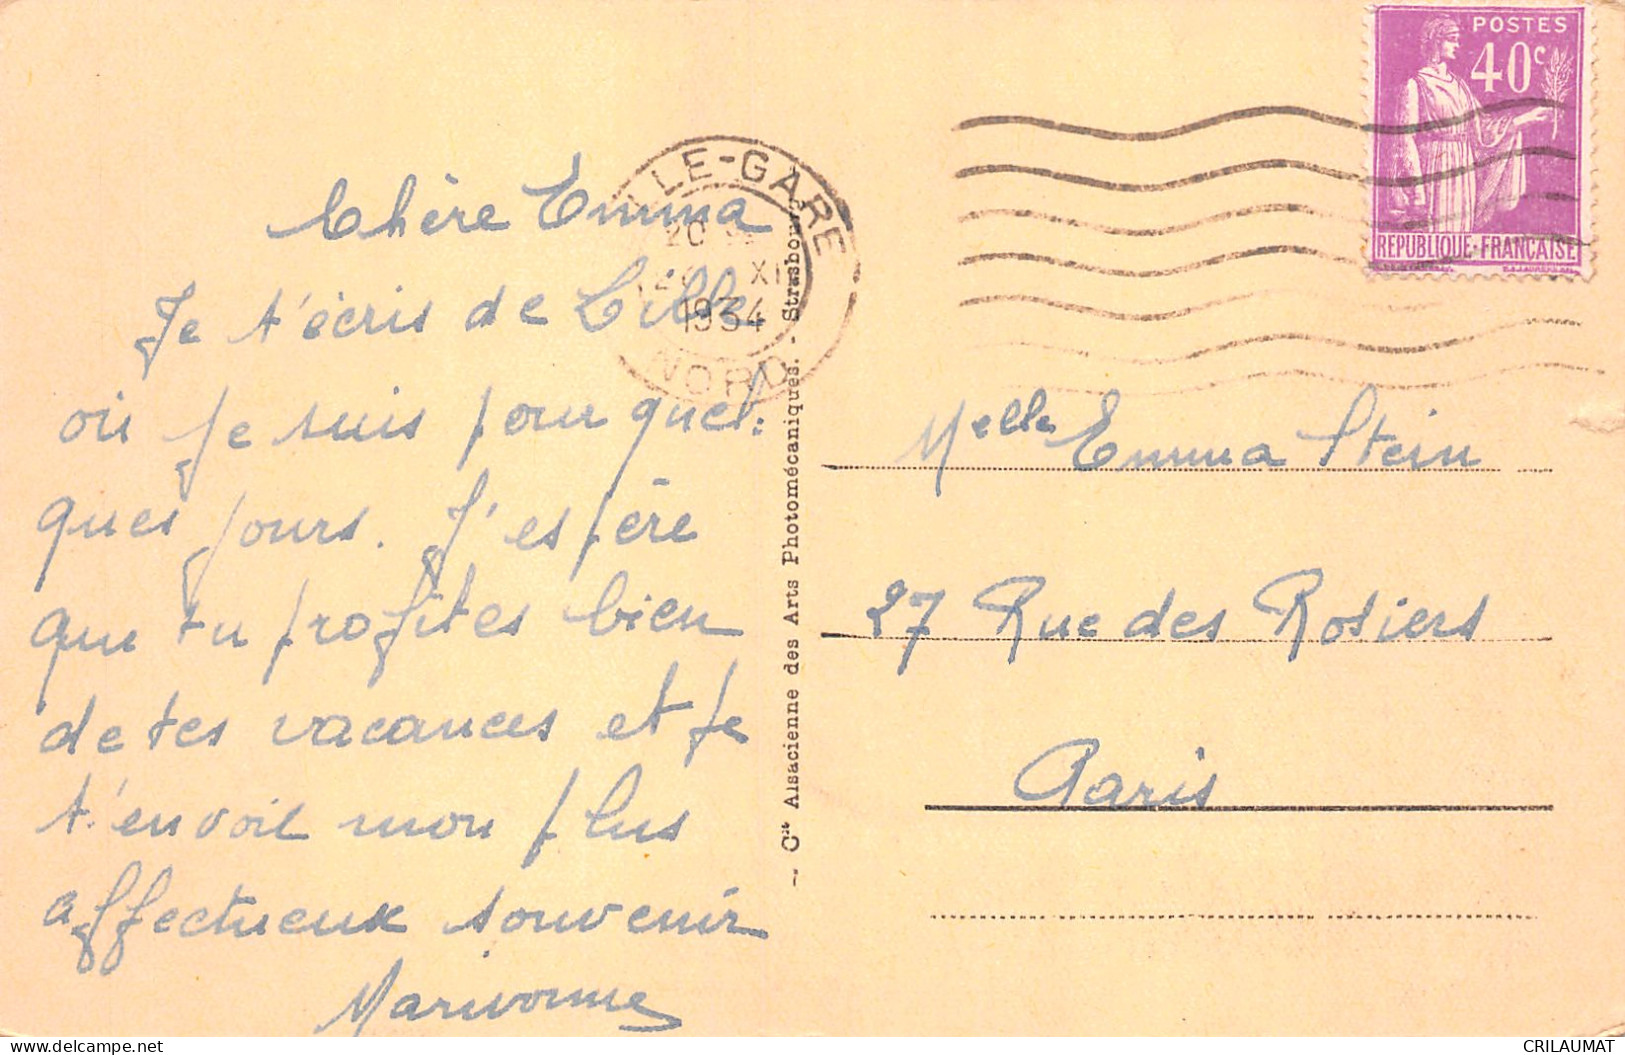 Chère Emma
Je t'écris de Lille
où je suis pour quel-
ques jours. J'espère
que tu profites bien
de tes vacances et je
t'envoie mon plus
affectueux souvenir
Marivonne
LILLE-GARE
20
XI
1934
NORD
- Cie Alsacienne des Arts Photomécaniques. - Strasbourg
POSTES
40c
REPUBLIQUE·FRANÇAISE
Melle Emma Stein
27 Rue des Rosiers
Paris
delcampe.net
CRILAUMAT